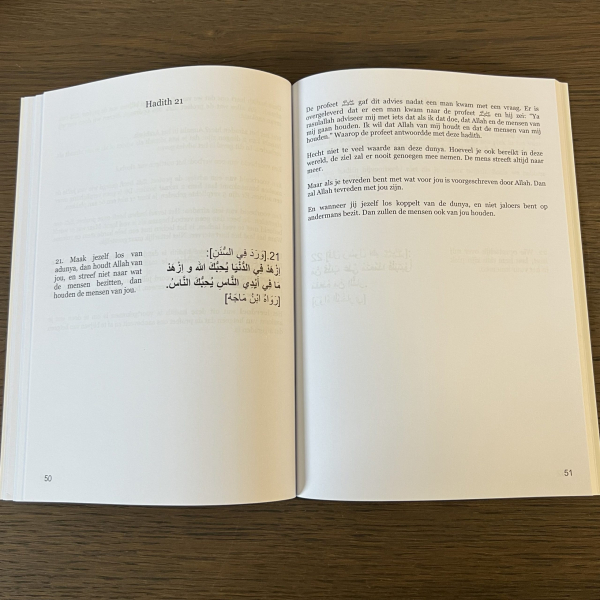 Hadith 21
21. Maak jezelf los van
adunya, dan houdt Allah van
jou, en streef niet naar wat
de mensen bezitten, dan
houden de mensen van jou.
21. [وَرَدَ فِي السُّنَنِ]:
اِزْهَدْ فِي الدُّنْيَا يُحِبُّكَ اللهُ و اِزْهَدْ
مَا فِي أَيْدِي النَّاسِ يُحِبُّكَ النَّاسُ.
[رَوَاهُ ابْنُ مَاجَهْ]
50
De profeet ﷺ gaf dit advies nadat een man kwam met een vraag. Er is
overgeleverd dat er een man kwam naar de profeet ﷺ en hij zei: "Ya
rasulallah adviseer mij met iets dat als ik dat doe, dat Allah en de mensen van
mij gaan houden. Ik wil dat Allah van mij houdt en dat de mensen van mij
houden." Waarop de profeet antwoordde met deze hadith.
Hecht niet te veel waarde aan deze dunya. Hoeveel je ook bereikt in deze
wereld, de ziel zal er nooit genoegen mee nemen. De mens streeft altijd naar
meer.
Maar als je tevreden bent met wat voor jou is voorgeschreven door Allah. Dan
zal Allah tevreden met jou zijn.
En wanneer jij jezelf los koppelt van de dunya, en niet jaloers bent op
andermans bezit. Dan zullen de mensen ook van jou houden.
51